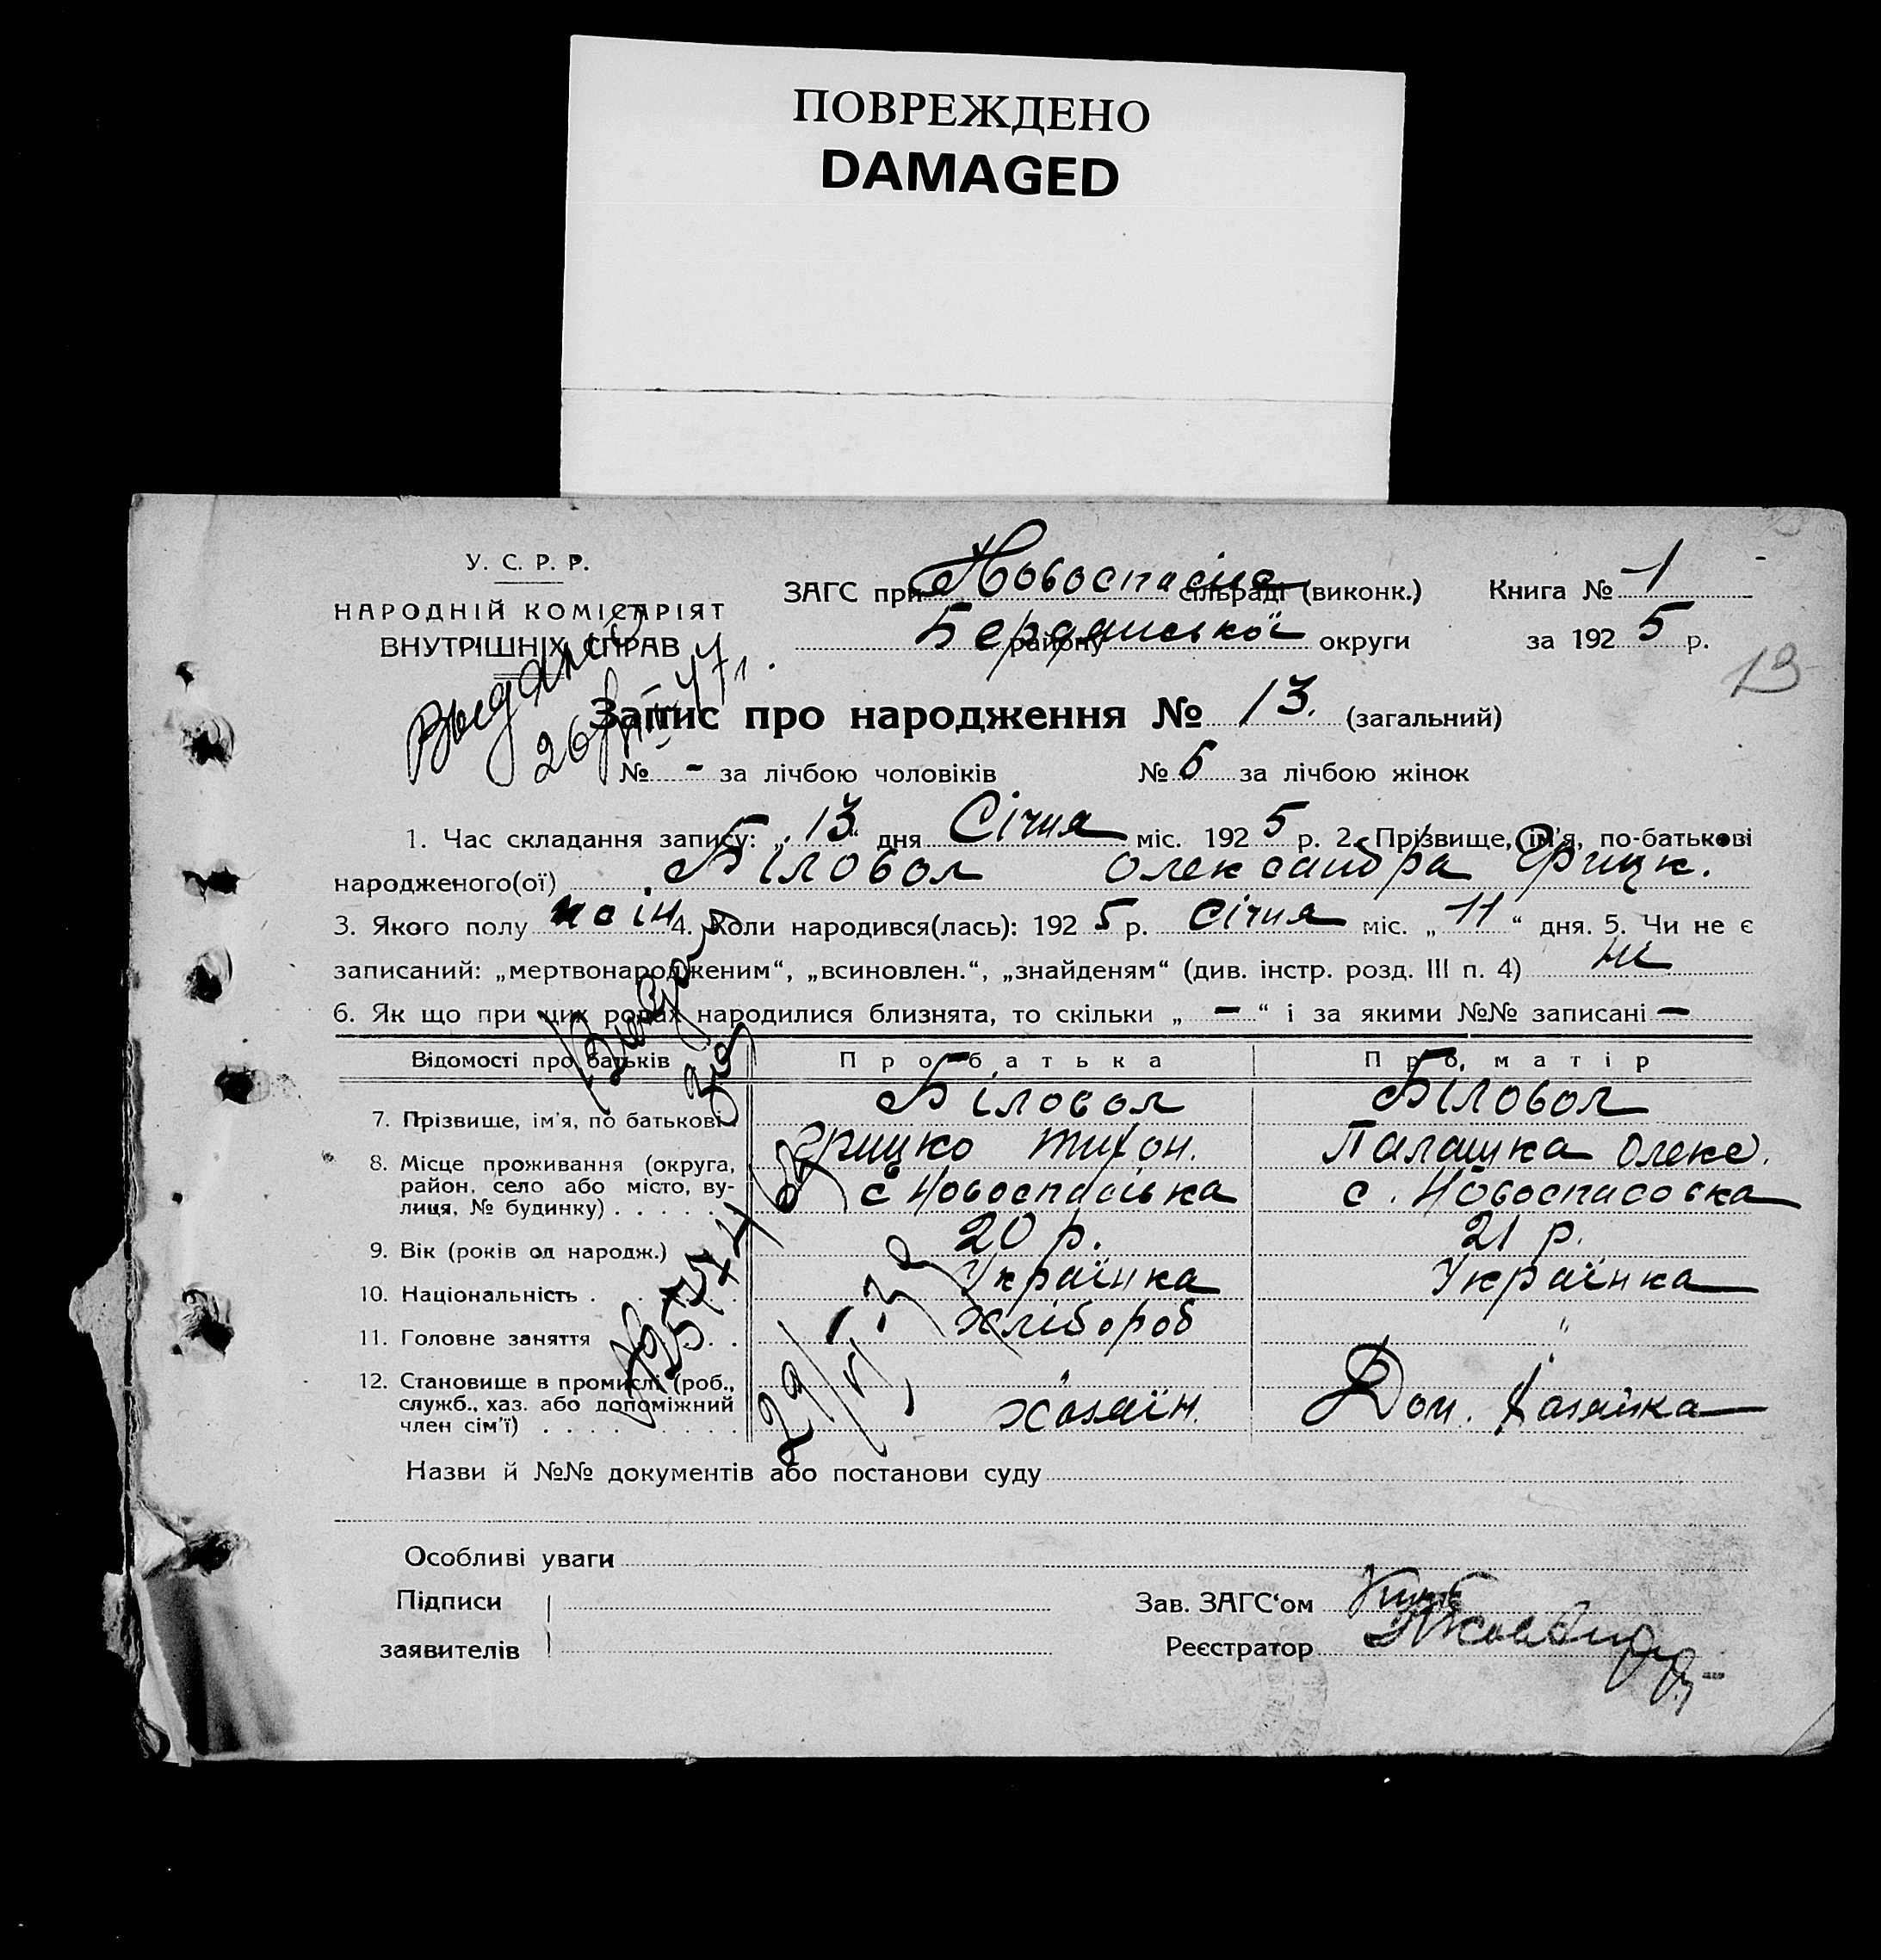 ПОВРЕЖДЕНО
DAMAGED
У. С. Р. Р.
НАРОДНІЙ КОМІСАРІЯТ
ВНУТРІШНІХ СПРАВ
ЗАГС при Новоспасів сільраді (виконк.) Книга № 1
району Бердянської округи за 1925 р.
13
Запис про народження № 13. (загальний)
№ - за лічбою чоловіків № 6 за лічбою жінок
1. Час складання запису: „13“ дня Січня міс. 1925 р. 2. Прізвище, ім'я, по-батькові
народженого(ої) Біловол Олександра Грицк.
3. Якого полу 4. Коли народився(лась): 1925 р. Січня міс. „11“ дня. 5. Чи не є
записаний: „мертвонародженим“, „всиновлен.“, „знайденям“ (див. інстр. розд. III п. 4) ні
6. Як що при цих родах народилися близнята, то скільки „-“ і за якими №№ записані -
Відомості про батьків Про батька Про матір
7. Прізвище, ім'я, по батькові Біловол Біловол
Грицко Тихон. Палашка Олекс.
8. Місце проживання (округа, район, село або місто, вулиця, № будинку) . . . . . . с Новоспасівка с. Новоспасовка
9. Вік (років од народж.) 20 р. 21 р.
10. Національність . . . . Українка Українка
11. Головне заняття . . . Хлібороб "
12. Становище в промислі (роб., служб., хаз. або допоміжний член сім'ї) . . . . . . . . . " Хозяїн. Дом. Хозяйка
Назви й №№ документів або постанови суду
Особливі уваги
Підписи
заявителів
Зав. ЗАГС'ом
Реєстратор